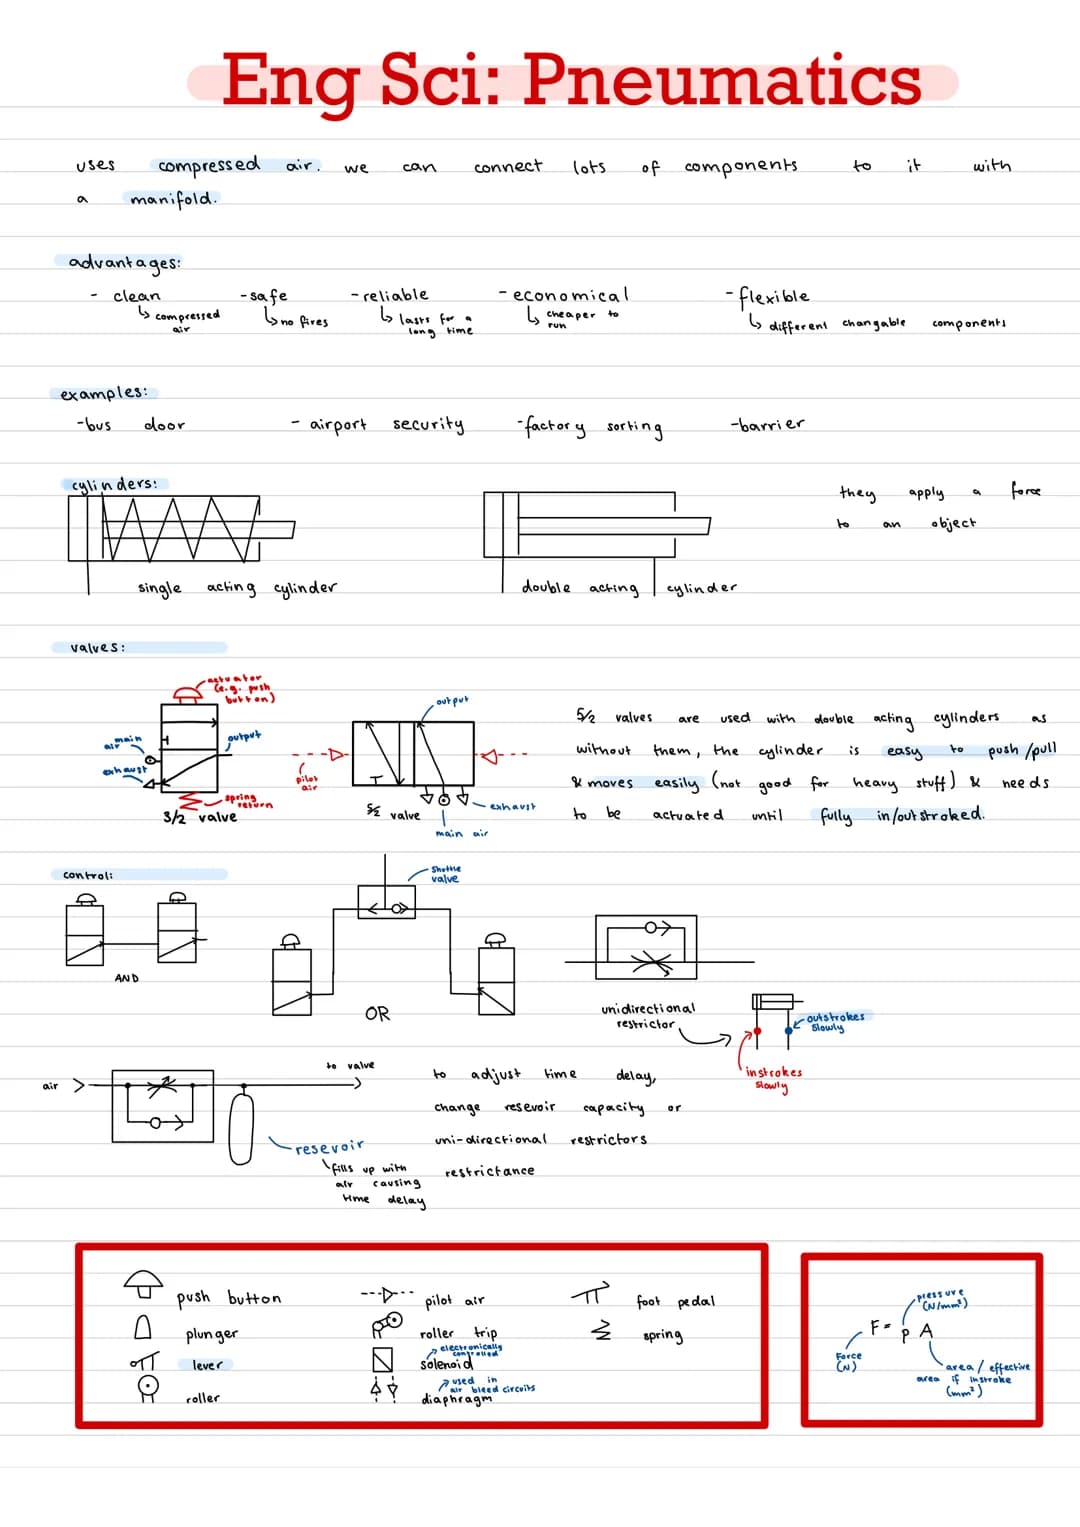 Eng Sci: Pneumatics
uses compressed air. we can connect lots of components to it with
a manifold.
advantages:
- clean
↳ compressed
air
- safe
↳ no fires
- reliable
↳ lasts for a
long time
- economical
↳ cheaper to
run
- flexible
↳ different changable components
examples:
- bus door - airport security - factory sorting - barrier
cylinders:
they apply a force
to an object
single acting cylinder
double acting cylinder
valves:
actuator
(e.g. push
button)
main
air
output
exhaust
spring
return
3/2 valve
output
pilot
air
exhaust
5/2 valve
main air
5/2 valves are used with double acting cylinders as
without them, the cylinder is easy to push/pull
& moves easily (not good for heavy stuff) & needs
to be actuated until fully in/outstroked.
control:
AND
shuttle
valve
OR
unidirectional
restrictor
outstrokes
slowly
instrokes
slowly
air
to valve
resevoir
fills up with
air causing
time delay
to adjust time delay,
change resevoir capacity or
uni-directional restrictors
restrictance
push button
plunger
lever
roller
pilot air
roller trip
electronically
controlled
solenoid
used in
air bleed circuits
diaphragm
foot pedal
spring
pressure
(N/mm²)
F = p A
Force
(N)
area / effective
area if instroke
(mm²)